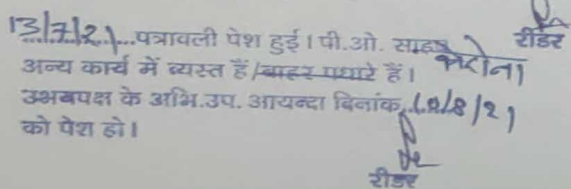 रीडर
13/7/21 पत्रावली पेश हुई। पी.ओ. साहब कोरोना
अन्य कार्य में व्यस्त हैं/बाहर पधारे हैं।
उभयपक्ष के अभि.उप. आयन्दा दिनांक 12/8/21
को पेश हो।
रीडर